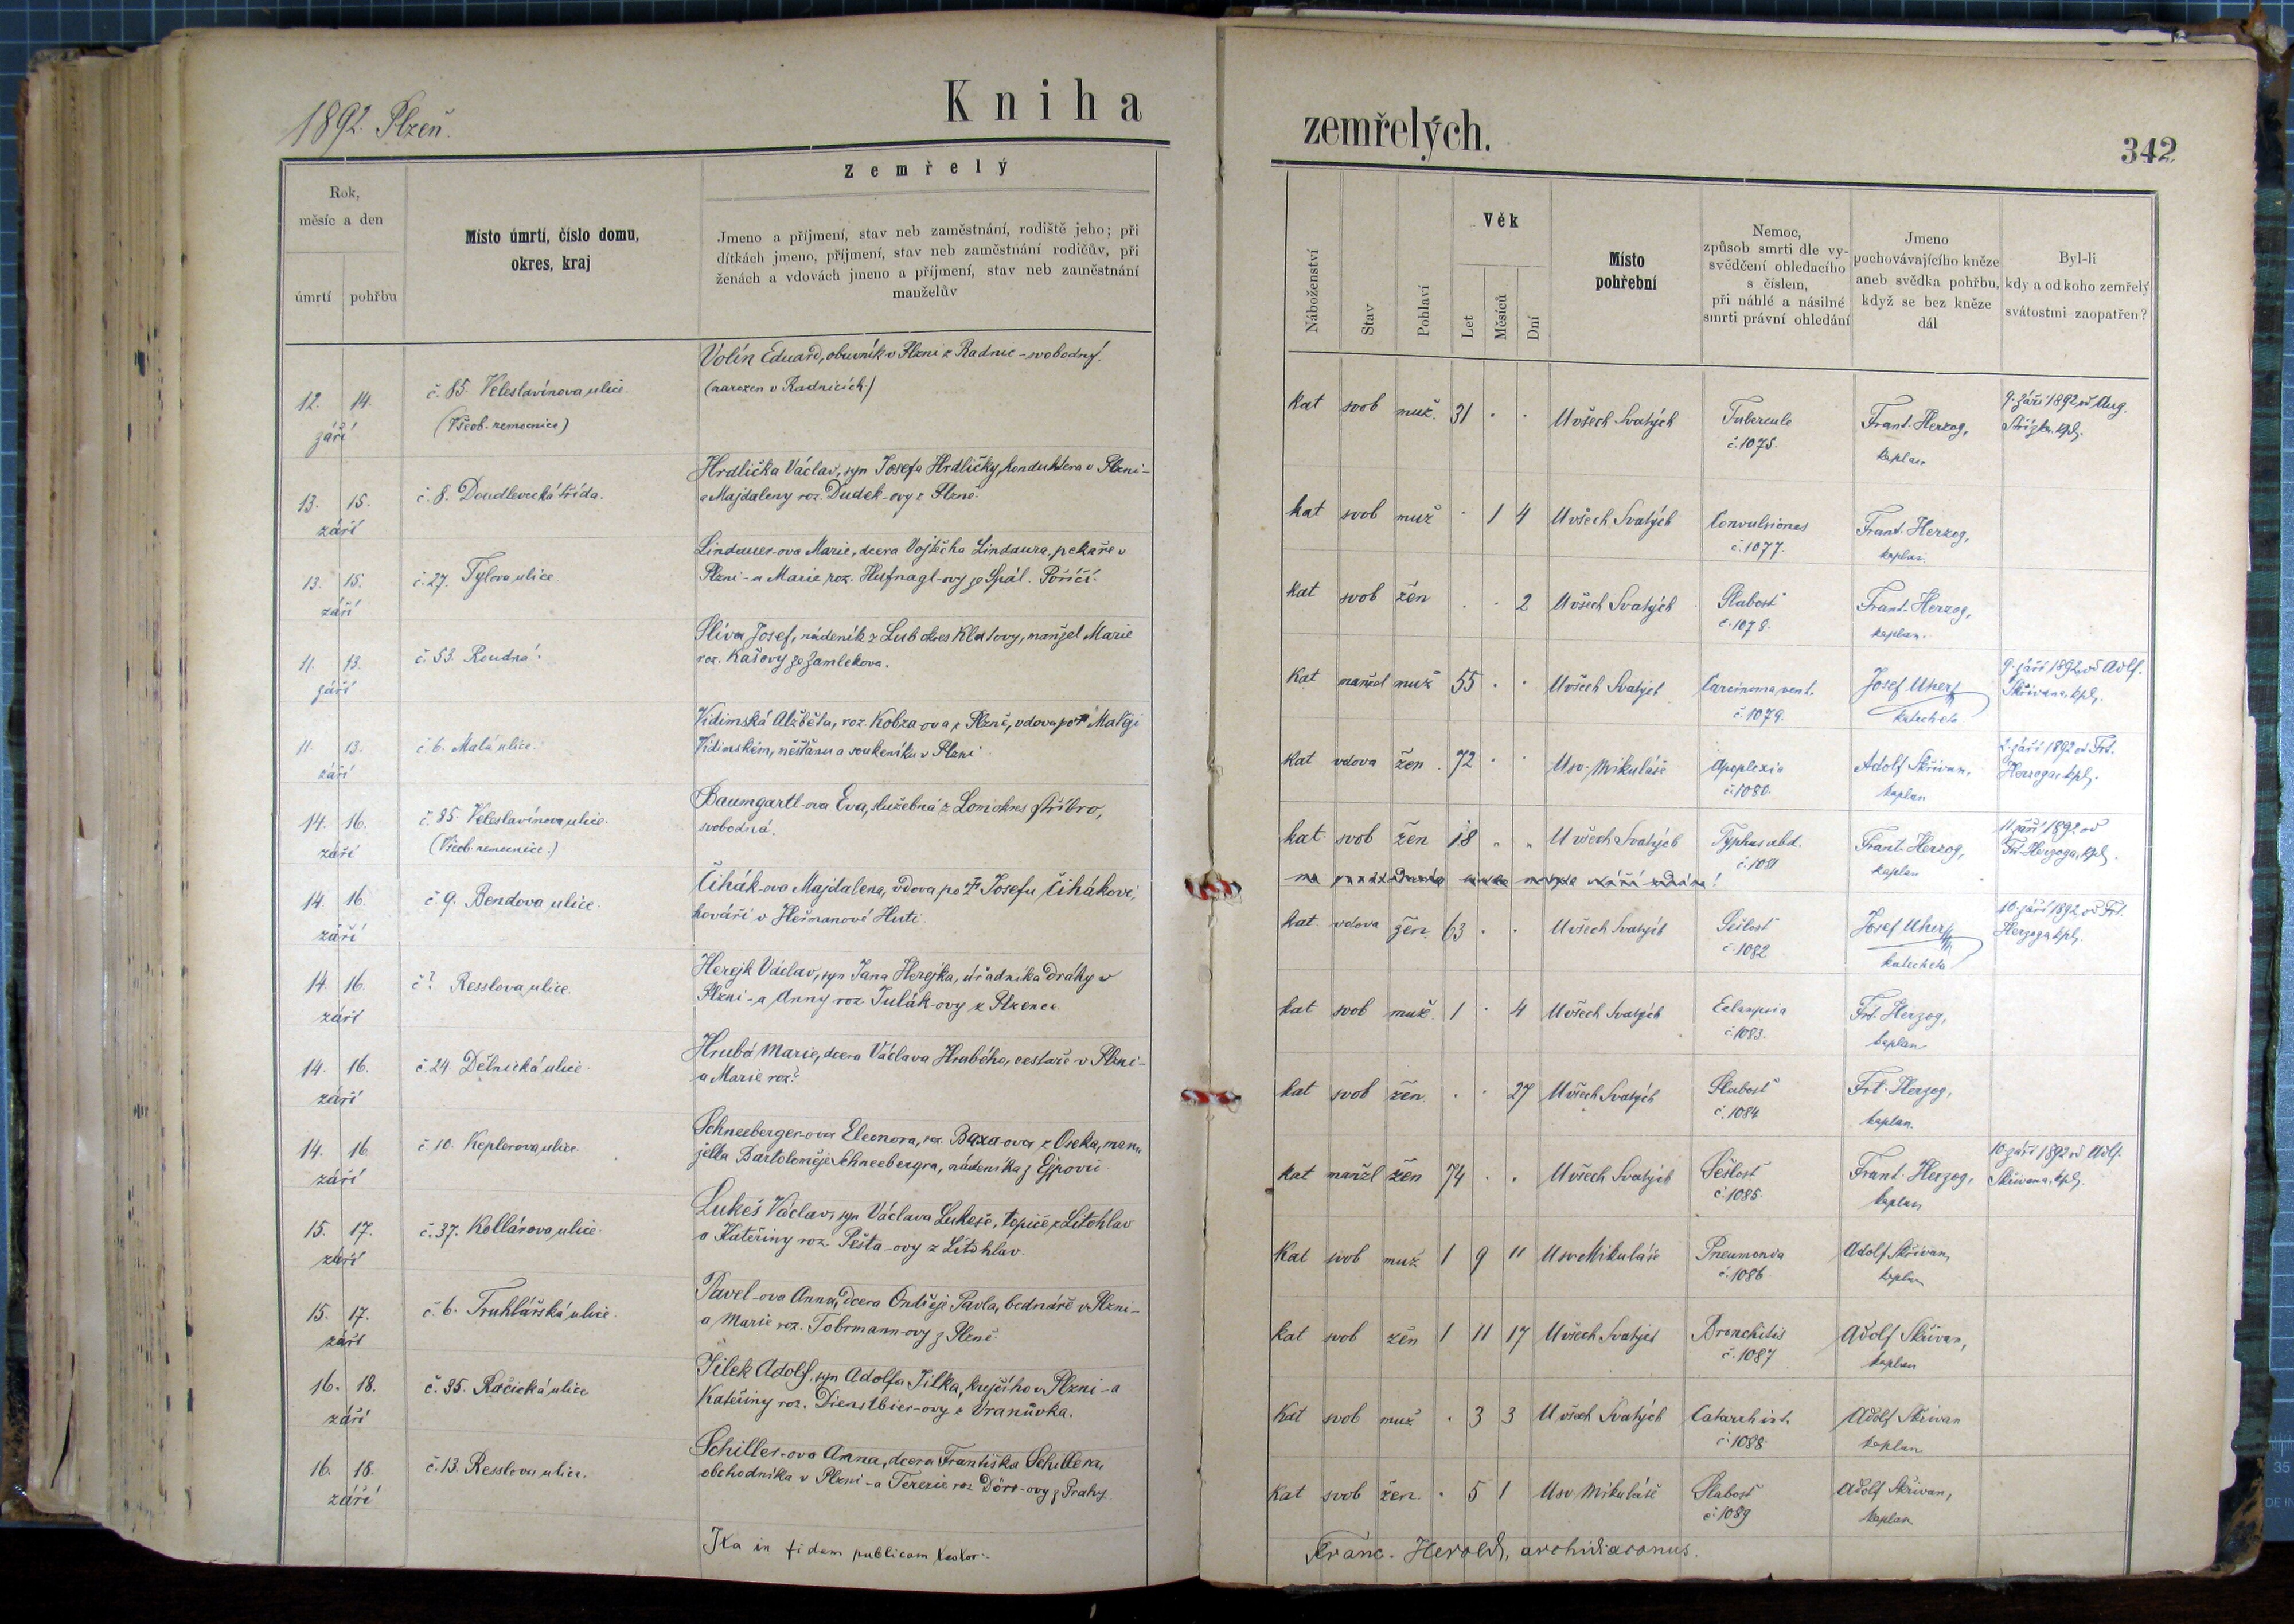 1892. Plzeň.
Kniha
Zemřelý
Rok,
měsíc a den
úmrtí
pohřbu
Místo úmrtí, číslo domu,
okres, kraj
Jmeno a příjmení, stav neb zaměstnání, rodiště jeho; při
dítkách jmeno, příjmení, stav neb zaměstnání rodičův, při
ženách a vdovách jmeno a příjmení, stav neb zaměstnání
manželův
12. 14.
září
č. 85. Veleslavínova ulice.
(Všeob. nemocnice)
Volín Eduard, obuvník v Plzni z Radnic - svobodný.
(narozen v Radnicích)
13. 15.
září
č. 8. Doudlevecká třída.
Hrdlička Václav, syn Josefa Hrdličky, konduktera v Plzni -
a Majdaleny roz. Dudek-ovy z Plzně.
13. 15.
září
č. 27. Tylova ulice
Lindauer-ova Marie, dcera Vojtěcha Lindaura, pekaře v
Plzni - a Marie roz. Hufnagl-ovy ze Spál. Poříčí.
11. 13.
září
č. 53. Roudná.
Slíva Josef, nádeník z Lub okres Klatovy, manžel Marie
roz. Kašovy ze Zamlekova.
11. 13.
září
č. 6. Malá ulice.
Vidimská Alžběta, roz. Kobza-ova z Plzně, vdova po † Matěji
Vidimském, měšťanu a soukeníku v Plzni
14. 16.
září
č. 85. Veleslavínova ulice.
(Všeob. nemocnice.)
Baumgartl-ova Eva, služebná z Lom okres Stříbro,
svobodná.
14. 16.
září
č. 9. Bendova ulice.
Čihák-ova Majdalena, vdova po † Josefu Čihákovi,
kováři v Heřmanově Huti.
14. 16.
září
č? Resslova ulice.
Herejk Václav, syn Jana Herejka, úřadníka dráhy v
Plzni - a Anny roz. Tulák-ovy z Plzence.
14. 16.
září
č. 24 Dělnická ulice.
Hrubá Marie, dcera Václava Hrubého, cestaře v Plzni -
a Marie roz?
14. 16.
září
č. 10. Keplerova ulice.
Schneeberger-ova Eleonora, roz. Baxa-ova z Oseka, man
želka Bartoloměje Schneebergra, nádeníka z Ejpovic
15. 17.
září
č. 37. Kollárova ulice.
Lukeš Václav, syn Václava Lukeše, topiče z Litohlav
a Kateřiny roz. Pešta-ovy z Litohlav.
15. 17.
září
č. 6. Truhlářská ulice.
Pavel-ova Anna, dcera Ondřeje Pavla, bednáře v Plzni -
a Marie roz. Tobrmann-ovy z Plzně.
16. 18.
září
č. 35. Račická ulice
Jílek Adolf, syn Adolfa Jílka, krejčího v Plzni - a
Kateřiny roz. Dienstbier-ovy z Vranůvka.
16. 18.
září
č. 13. Resslova ulice.
Schiller-ova Anna, dcera Františka Schillera,
obchodníka v Plzni - a Terezie roz. Dörr-ovy z Prahy.
Ita in fidem publicam testor:
zemřelých.
342
Náboženství
Stav
Pohlaví
Věk
Let
Měsíců
Dní
Místo
pohřební
Nemoc,
způsob smrti dle vy-
svědčení ohledacího
s číslem,
při náhlé a násilné
smrti právní ohledání
Jmeno
pochovávajícího kněze
aneb svědka pohřbu,
když se bez kněze
dál
Byl-li
kdy a od koho zemřelý
svátostmi zaopatřen?
kat svob muž. 31 . . U všech Svatých Tubercule
č. 1075.
Frant. Herzog,
kaplan
9. září 1892 od Aug.
kpl.
kat svob muž . 1 4 U všech Svatých Convulsiones
č. 1077.
Frant. Herzog,
kaplan.
kat svob žen . . 2 U všech Svatých Slabost
č. 1078.
Frant. Herzog,
kaplan.
kat manžel muž 55 . . U všech Svatých Carcinoma vent.
č. 1079.
Josef Uherz
katecheta
9. září 1892 od Adolf.
Skřivana, kpl.
kat vdova žen. 72 . . U sv. Mikuláše Apoplexie
č. 1080.
Adolf Skřivan,
kaplan
2. září 1892 od Frt.
Herzoga, kpl.
kat. svob žen 18 " " U všech Svatých Typhus abd.
č. 1081
Frant. Herzog,
kaplan
11. září 1892 od
Frt. Herzoga, kpl.
kat vdova žen. 63 . . U všech Svatých Sešlost
č. 1082
Josef Uherz
katecheta
10. září 1892 od Frt.
Herzoga, kpl.
kat svob muž. 1 . 4 U všech Svatých Eclampsia
č. 1083.
Frt. Herzog,
kaplan
kat svob žen. . . 27 U všech Svatých Slabost
č. 1084
Frt. Herzog,
kaplan.
kat manžl žen 74 . . U všech Svatých Sešlost
č. 1085.
Frant. Herzog,
kaplan
10. září 1892 od Adlf.
Skřivana, kpl.
kat svob muž 1 9 11 U sv Mikuláše Pneumonia
č. 1086
Adolf Skřivan,
kaplan
kat svob žen 1 11 17 U všech Svatých Bronchitis
č. 1087
Adolf Skřivan,
kaplan
kat svob muž . 3 3 U všech Svatých Catarrh int.
č. 1088.
Adolf Skřivan
kaplan
kat svob žen. . 5 1 U sv Mikuláše Slabost
č. 1089
Adolf Skřivan,
kaplan.
Franc. Herold, archidiaconus.